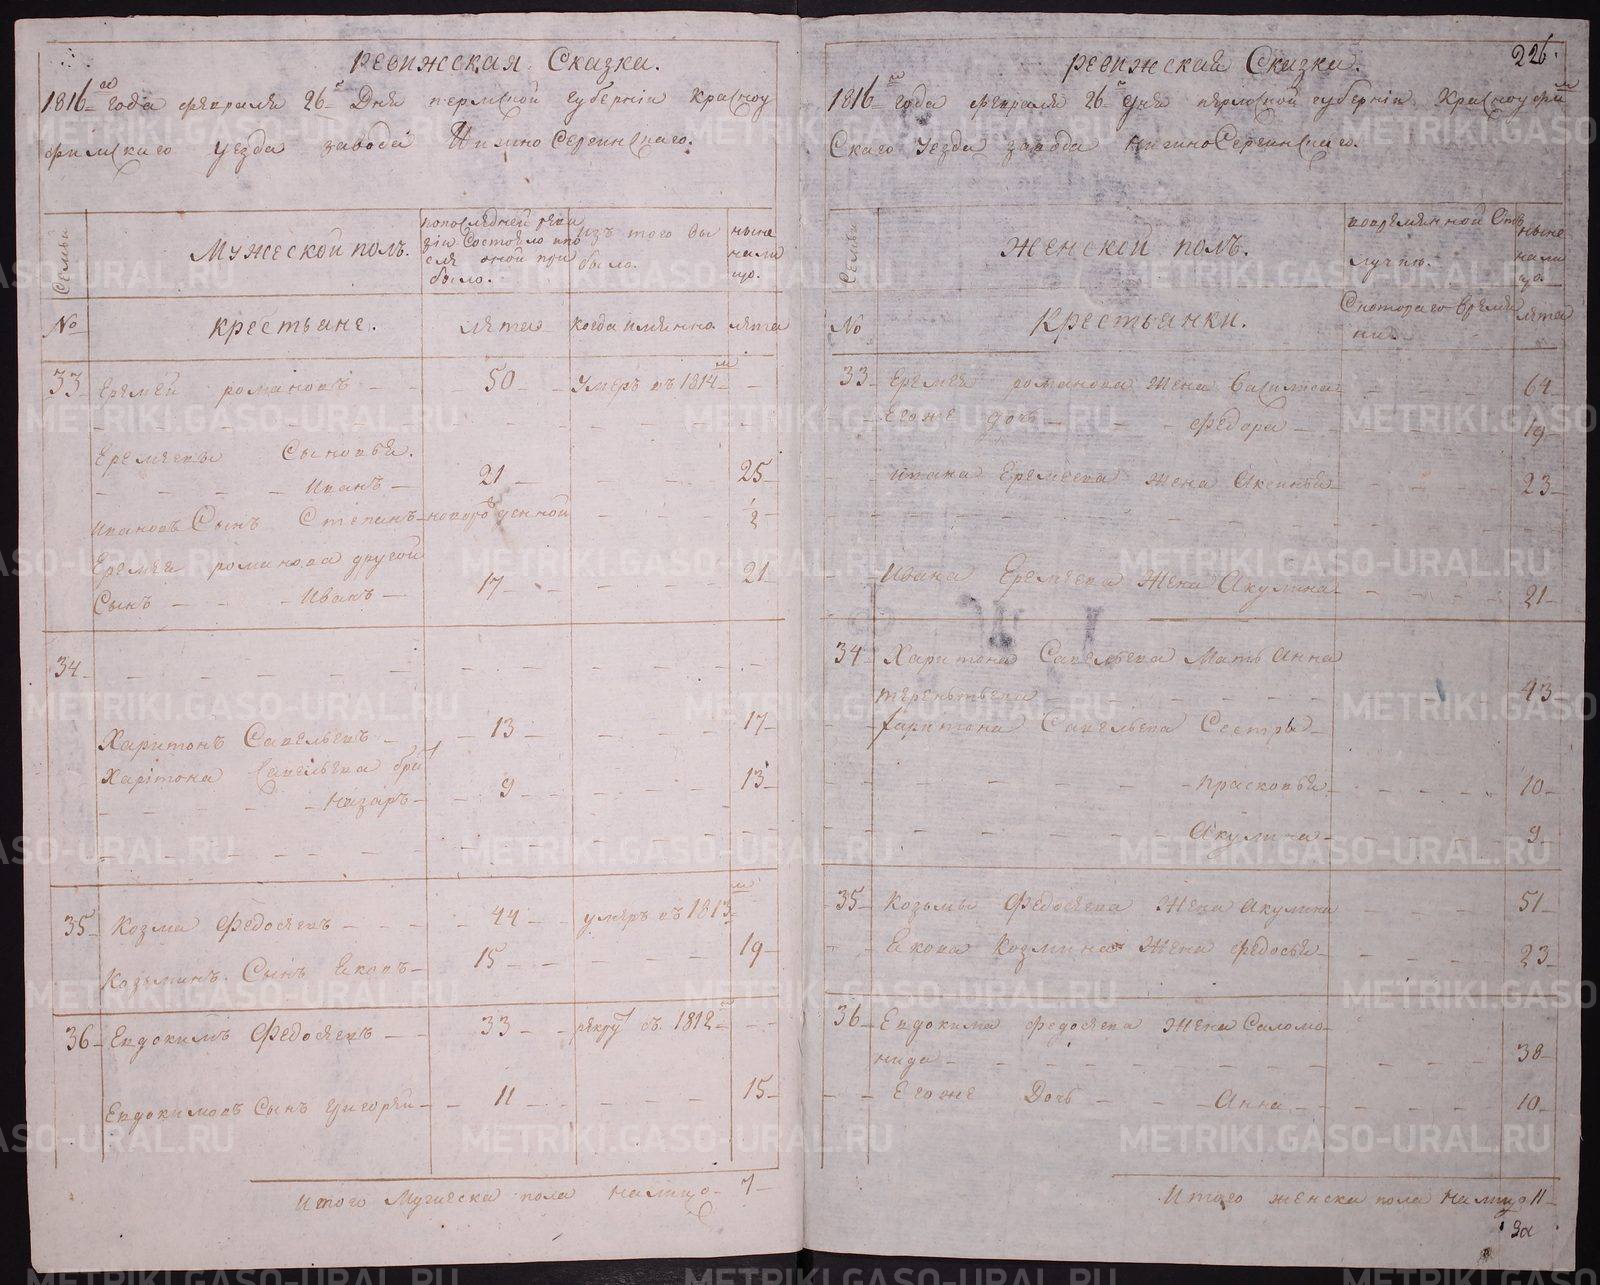 ревижская Сказка.
1816-го года февраля 26-го Дня пермской губернiи Красноу
фимскаго уезда завода Нижно Сергинскаго.
Семьи
Мужеской полъ.
попоследней реви
зiи Состояло ипо
сля оной при
было.
изъ того вы
было.
ныне
нали
цо.
No
крестьяне.
лета
когда имянно.
лета
33 Еремей романовъ 50 Умеръ въ 1814-м
Еремеевы Сыновья.
Иванъ 21 25
Ивановъ Сынъ Степанъ новорожденной 1/2
Еремея романова другой
Сынъ Иванъ 17 21
34
Харитонъ Савельевъ 13 17
Харiтона Савельева братъ
Назаръ 9 13
35 Козма Федосеевъ 44 умеръ въ 1813-м
Козьминъ Сынъ Яковъ 15 19
36 Евдокимъ Федосеевъ 33 рекрут съ 1812-го
Евдокимовъ Сынъ Григорей 11 15
Итого Мужеска пола налицо 7
226.
ревижской Сказки.
1816-го года февраля 26-го дня пермской губернiи Красноуфим
Скаго Уезда завода нижноСергинскаго.
Семьи
Женской полъ.
вовременной Отъ
лучке.
ныне
нали
цо.
No
Крестьянки.
Скотораго Време
ни.
лета
33 Еремея романова Жена Василиса 64
Егоже дочь Федора 19
Ивана Еремеева жена Аксинья 23
Ивана Еремеева Жена Акулина 21
34 Харитона Савельева Мать Анна
терентьева 43
Харитона Савельева Сестры
Прасковья 10
Акулина 9
35 Козьмы Федосеева Жена Акулина 51
Якова Козмина Жена Федосья 23
36 Евдокима Федосеева Жена Саломо
нида 38
Егоже Дочь Анна 10
Итого женска пола налицо 11
За
METRIKI.GASO-URAL.RU